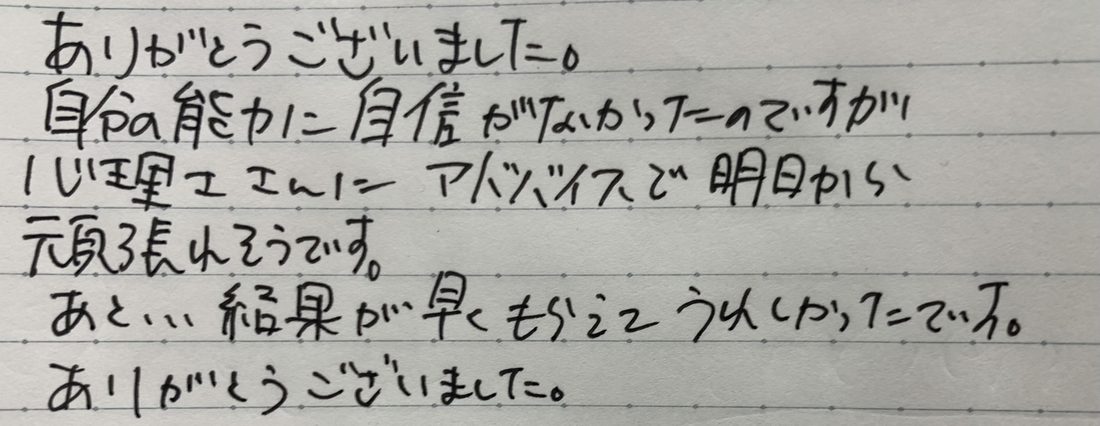 ありがとうございました。
自分の能力に自信がなかったのですが
心理士さんにアドバイスで明日から
頑張れそうです。
あと... 結果が早くもらえて うれしかったです。
ありがとうございました。